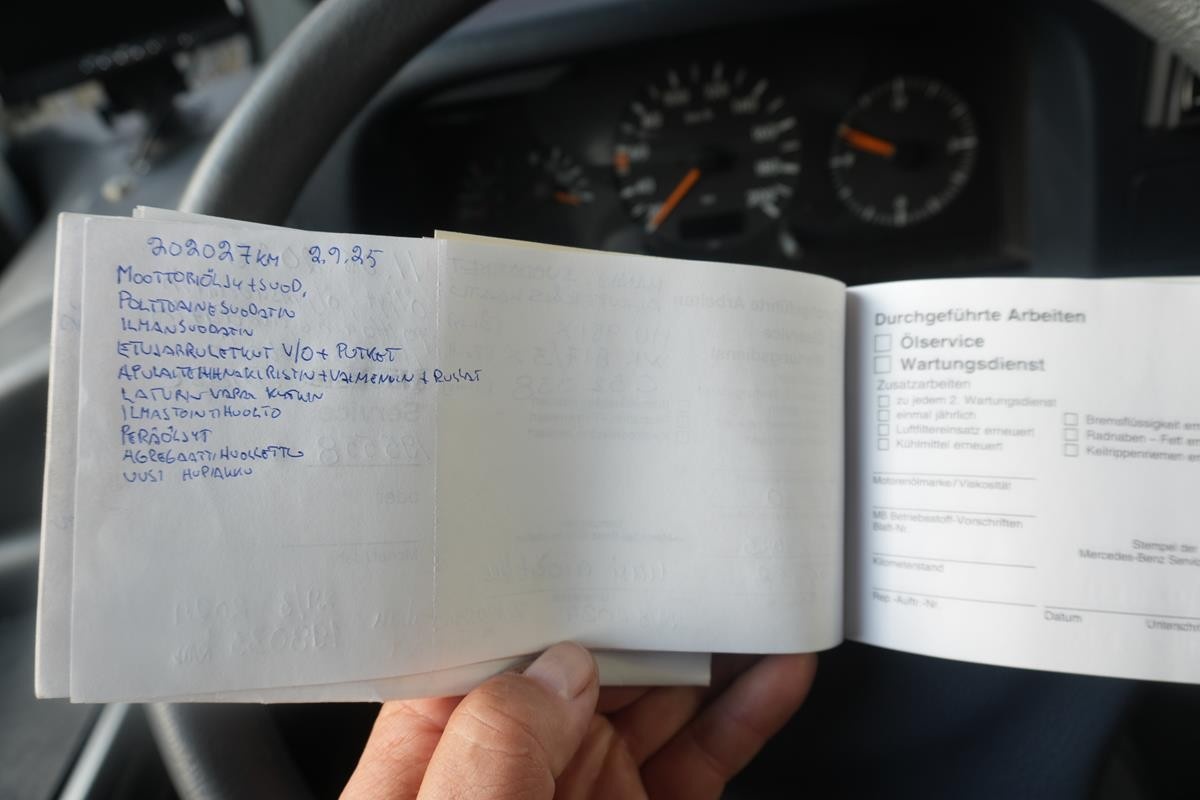 202027 KM 2.9.25
MOOTTORIÖLJY + SUOD.
POLTTOAINESUODATIN
ILMANSUODATIN
ETUJARRULETKUT V/O + PUTKET
LATURIN VAPAA KYTKIN
ILMASTOINTIHUOLTO
PERÄÖLJYT
AGREGAATTI HUOLLETTU
UUSI HUPIAKKU
Durchgeführte Arbeiten
Ölservice
Wartungsdienst
Zusatzarbeiten
zu jedem 2. Wartungsdienst
einmal jährlich
Luftfiltereinsatz erneuert
Kühlmittel erneuert
Bremsflüssigkeit ern
Radnaben – Fett er
Keilrippenriemen er
Motorenölmarke/Viskosität
MB Betriebsstoff-Vorschriften
Blatt-Nr.
Kilometerstand
Rep.-Auftr.-Nr.
Stempel der
Mercedes-Benz Servic
Datum
Unterschri